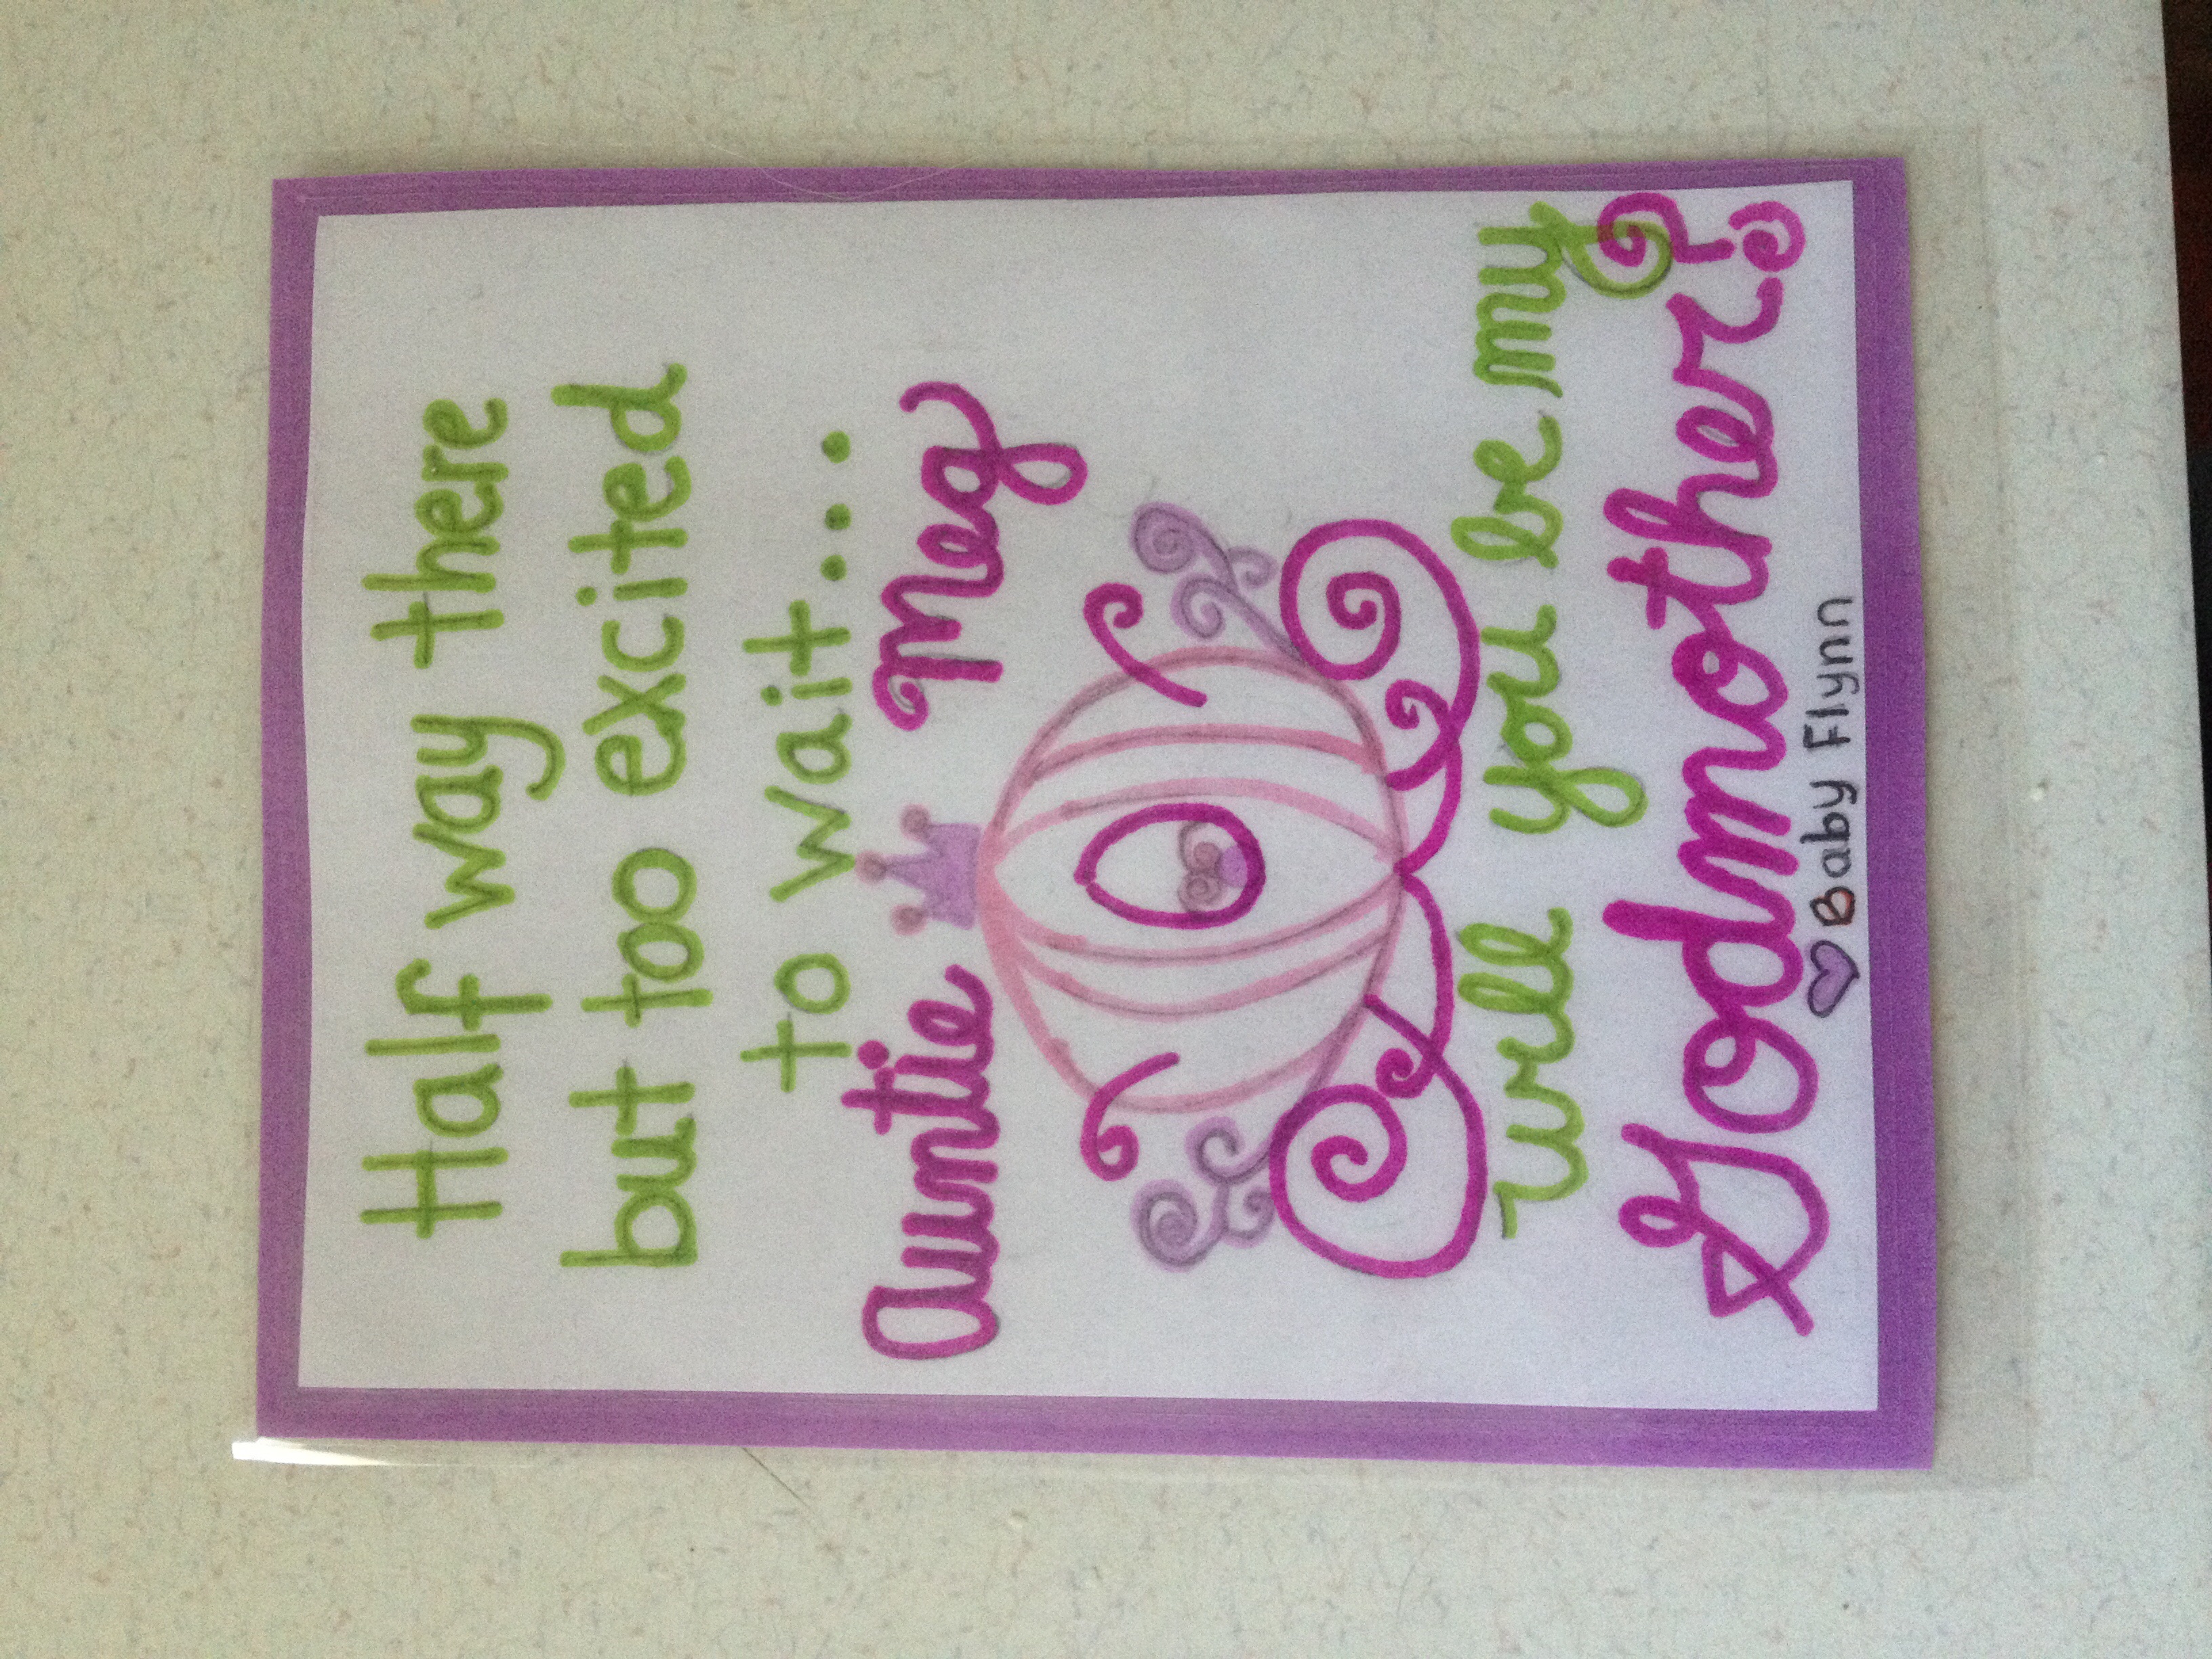 Half way there
but too excited
to wait...
Auntie Meg
will you be my
Godmother?
Baby Flynn